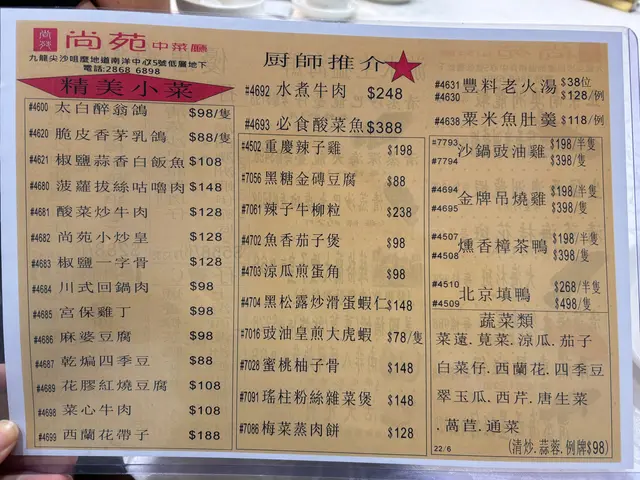 尚苑
尚苑中菜廳
九龍尖沙咀麼地道南洋中心75號低層地下
電話:2868 6898
精美小菜
#4600 太白醉翁鴿 $98/隻
#4620 脆皮香茅乳鴿 $88/隻
#4621 椒鹽蒜香白飯魚 $108
#4680 菠蘿拔絲咕嚕肉 $148
#4681 酸菜炒牛肉 $128
#4682 尚苑小炒皇 $128
#4683 椒鹽一字骨 $128
#4684 川式回鍋肉 $98
#4685 宮保雞丁 $98
#4686 麻婆豆腐 $98
#4687 乾煸四季豆 $88
#4689 花膠紅燒豆腐 $108
#4698 菜心牛肉 $108
#4699 西蘭花帶子 $188
厨師推介
#4692 水煮牛肉 $248
#4693 必食酸菜魚 $388
#4502 重慶辣子雞 $198
#7056 黑糖金磚豆腐 $88
#7061 辣子牛柳粒 $238
#4702 魚香茄子煲 $98
#4703 涼瓜煎蛋角 $98
#4704 黑松露炒滑蛋蝦仁 $148
#7016 豉油皇煎大虎蝦 $78/隻
#7028 蜜桃柚子骨 $148
#7091 瑤柱粉絲雜菜煲 $148
#7086 梅菜蒸肉餅 $128
#4631 豐料老火湯 $38位
#4630 $128/例
#4638 粟米魚肚羹 $118/例
#7793 沙鍋豉油雞 $198/半隻
#7794 $398/隻
#4694 金牌吊燒雞 $198/半隻
#4695 $398/隻
#4507 燻香樟茶鴨 $198/半隻
#4508 $398/隻
#4510 北京填鴨 $268/半隻
#4509 $498/隻
蔬菜類
菜薳.莧菜.涼瓜.茄子
白菜仔.西蘭花.四季豆
翠玉瓜.西芹.唐生菜
.萵苣.通菜
22/6 (清炒.蒜蓉.例牌$98)